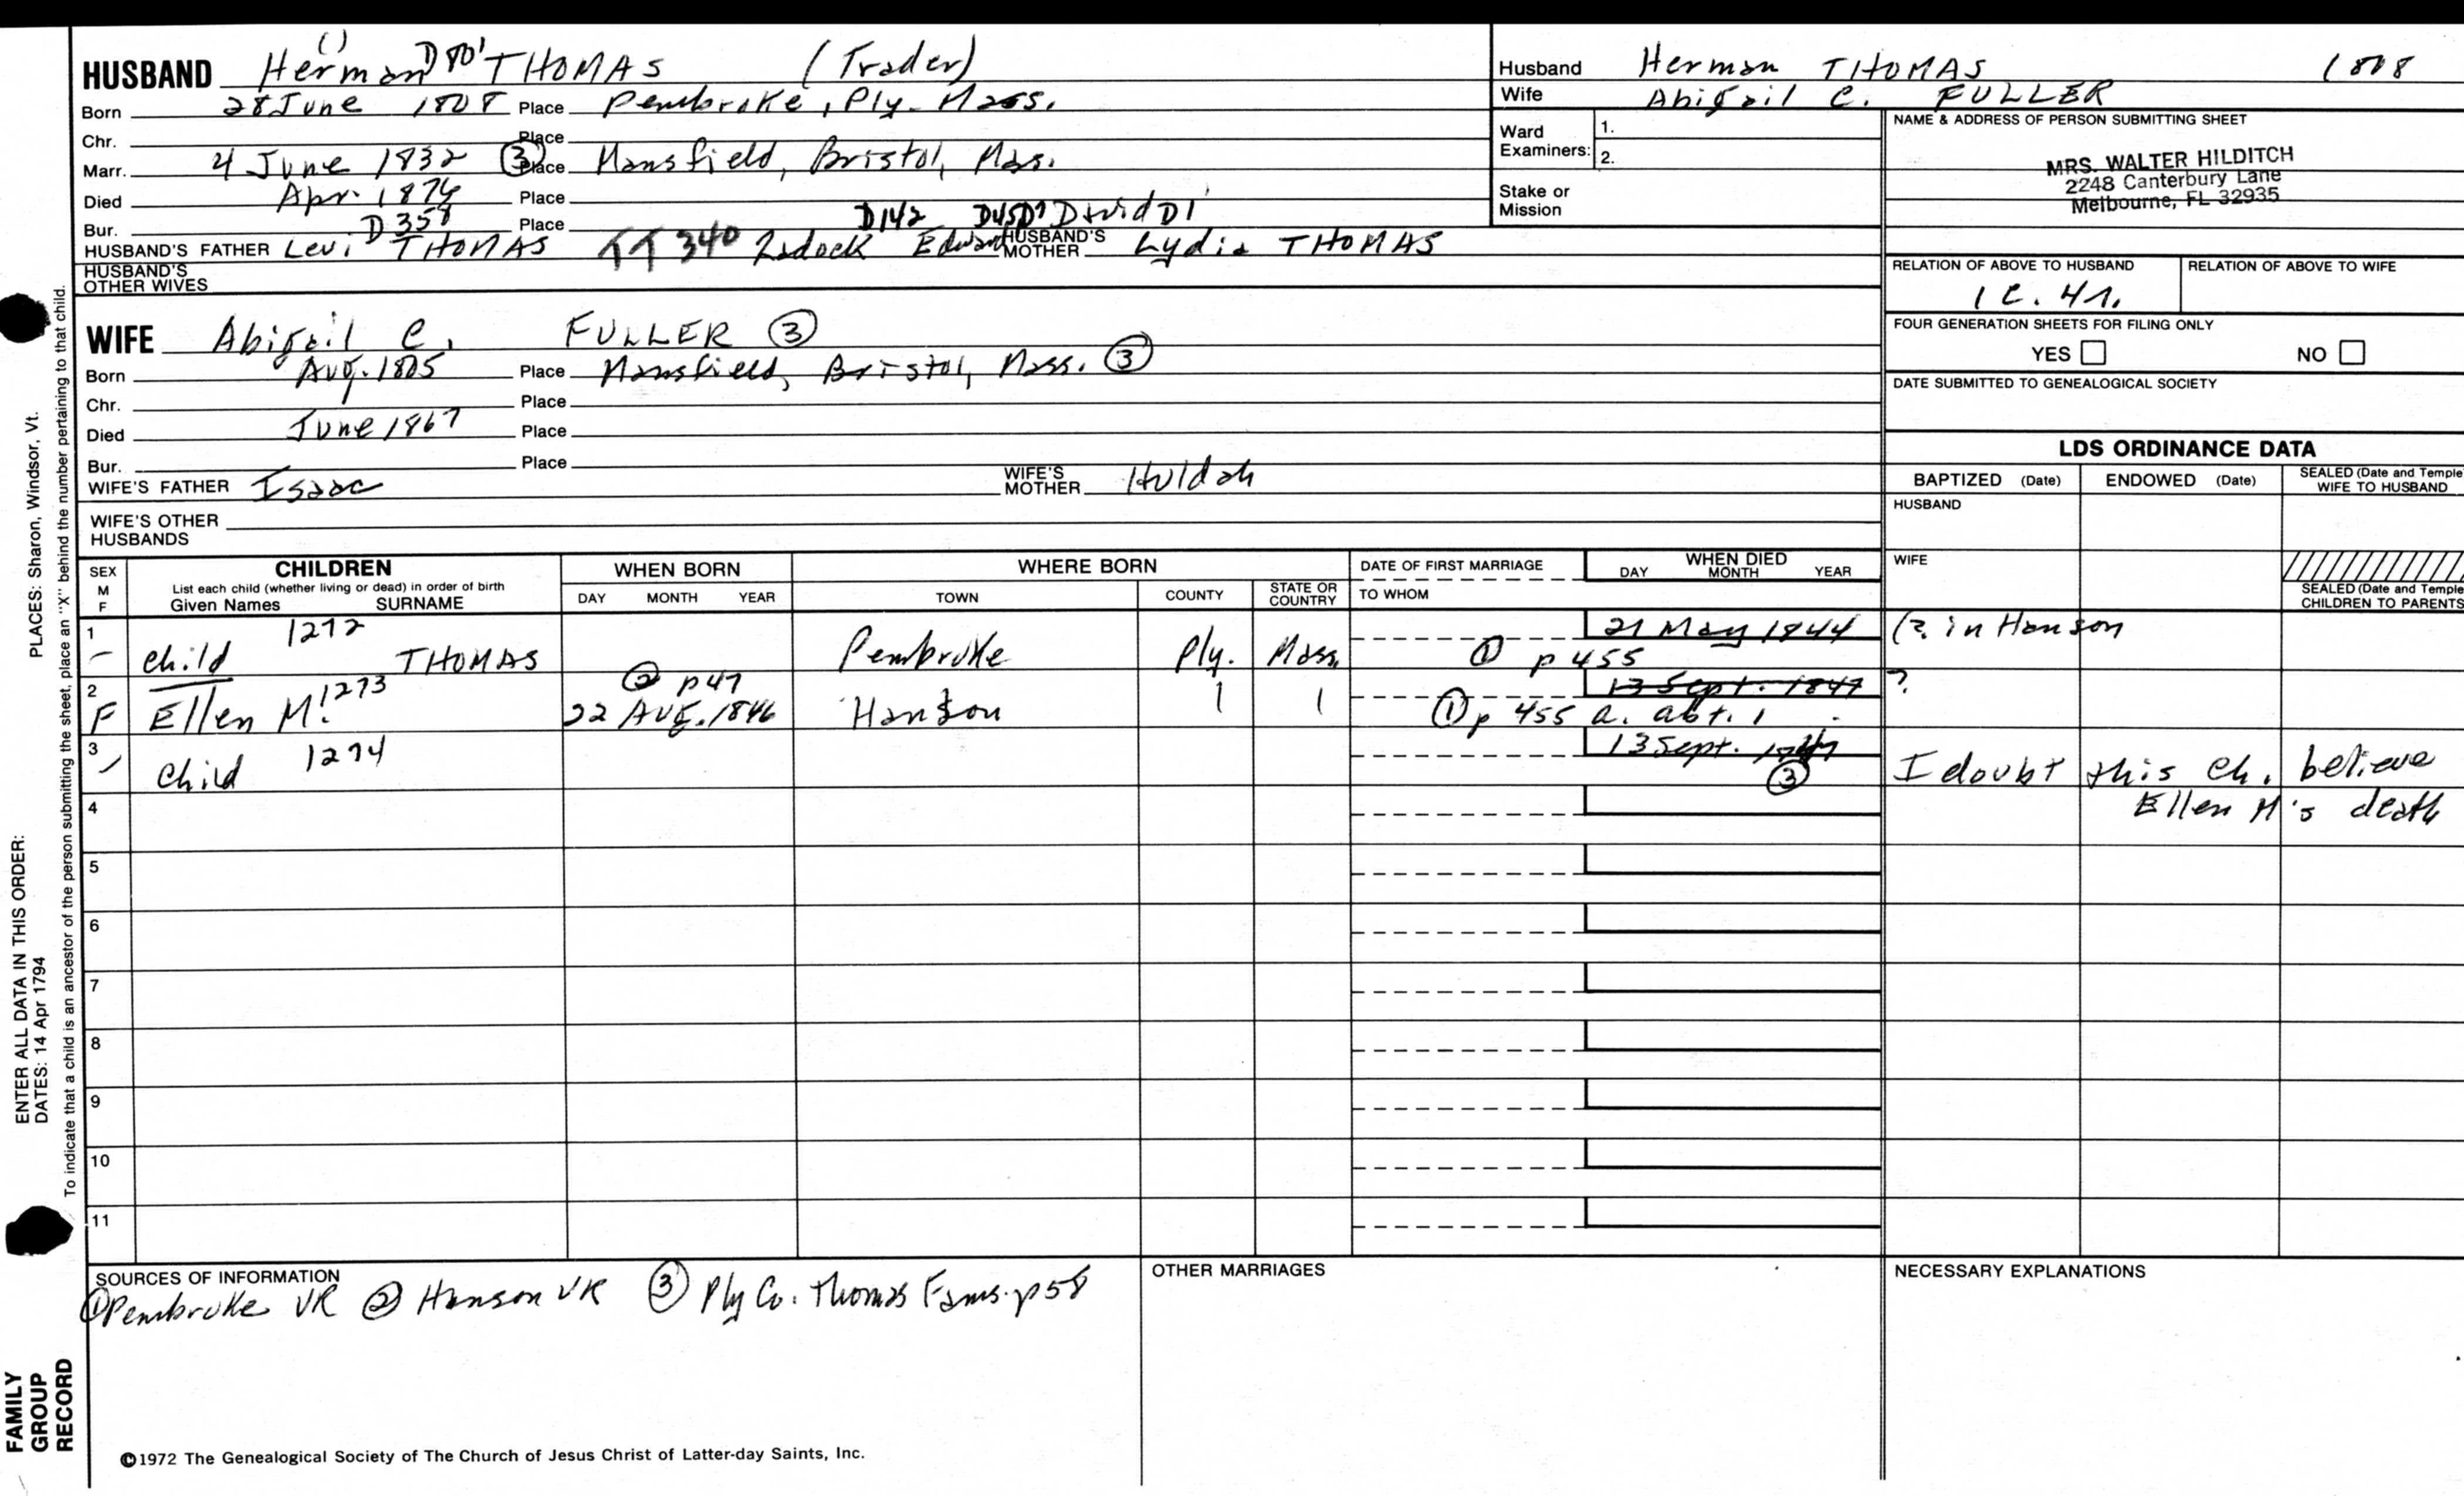 HUSBAND Herman THOMAS (Trader)
Born 28 June 1808 Place Pembroke, Ply. Mass.
Chr. Place
Marr. 4 June 1832 ③ Place Mansfield, Bristol, Mass.
Died Apr. 1876 Place
Bur. D358 Place D142 David D1
HUSBAND'S FATHER Levi THOMAS TT 340 Zadock Edward HUSBAND'S MOTHER Lydia THOMAS
HUSBAND'S OTHER WIVES
WIFE Abigail C. FULLER ③
Born Aug. 1805 Place Mansfield, Bristol, Mass. ③
Chr. Place
Died June 1867 Place
Bur. Place
WIFE'S FATHER Isaac WIFE'S MOTHER Huldah
WIFE'S OTHER HUSBANDS
Husband Herman THOMAS 1808
Wife Abigail C. FULLER
Ward Examiners: 1.
2.
Stake or Mission
NAME & ADDRESS OF PERSON SUBMITTING SHEET
MRS. WALTER HILDITCH
2248 Canterbury Lane
Melbourne, FL 32935
RELATION OF ABOVE TO HUSBAND RELATION OF ABOVE TO WIFE
1 C. 4 r.
FOUR GENERATION SHEETS FOR FILING ONLY
YES NO
DATE SUBMITTED TO GENEALOGICAL SOCIETY
LDS ORDINANCE DATA
BAPTIZED (Date) ENDOWED (Date) SEALED (Date and Temple) WIFE TO HUSBAND
HUSBAND
WIFE
SEALED (Date and Temple) CHILDREN TO PARENTS
SEX M F CHILDREN WHEN BORN WHERE BORN DATE OF FIRST MARRIAGE WHEN DIED
List each child (whether living or dead) in order of birth
Given Names SURNAME DAY MONTH YEAR TOWN COUNTY STATE OR COUNTRY TO WHOM DAY MONTH YEAR
1 1272 21 May 1844 (? in Hanson
child THOMAS Pembroke Ply. Mass. ① p 455
2 1273 ② p47 13 Sept. 1847 ?
F Ellen M. 22 Aug. 1846 Hanson ① p 455 a. abt. 1
3 1274 13 Sept. 1847 ③
child I doubt this ch. believe
4 Ellen M's death
5
6
7
8
9
10
11
SOURCES OF INFORMATION
① Pembroke VR ② Hanson VR ③ Ply Co. Thomas Fams. p58
OTHER MARRIAGES
NECESSARY EXPLANATIONS
©1972 The Genealogical Society of The Church of Jesus Christ of Latter-day Saints, Inc.
FAMILY GROUP RECORD
ENTER ALL DATA IN THIS ORDER:
DATES: 14 Apr 1794
PLACES: Sharon, Windsor, Vt.
To indicate that a child is an ancestor of the person submitting the sheet, place an "X" behind the number pertaining to that child.